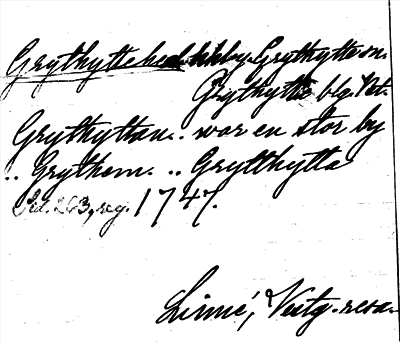 Grythyttehed kkby. Grythytte sn.
Grythytte blg. Vst.
Grythyttan.. war en stor by
.. Grythem. .. Grytthytta
Sid. 263, reg. 1747.
Linné, Vestg.-resa.